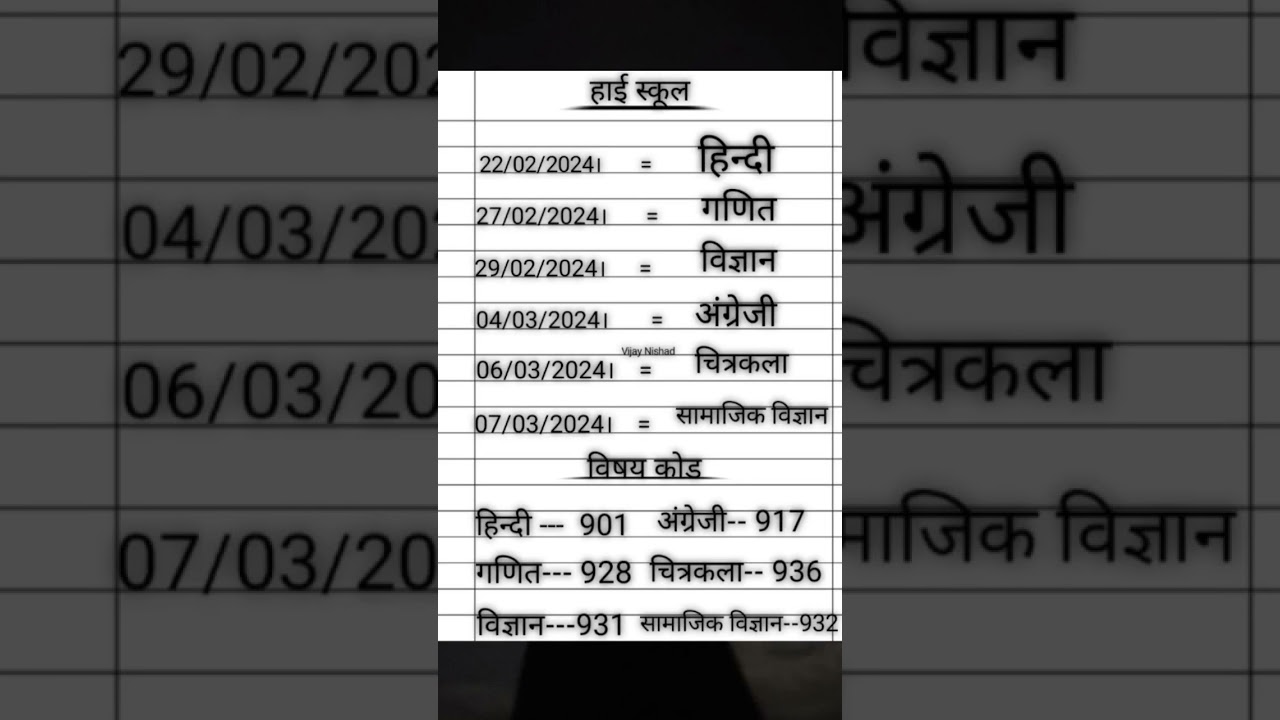 हाई स्कूल
22/02/2024। = हिन्दी
27/02/2024। = गणित
29/02/2024। = विज्ञान
04/03/2024। = अंग्रेजी
Vijay Nishad
06/03/2024। = चित्रकला
07/03/2024। = सामाजिक विज्ञान
विषय कोड
हिन्दी --- 901 अंग्रेजी-- 917
गणित--- 928 चित्रकला-- 936
विज्ञान---931 सामाजिक विज्ञान--932